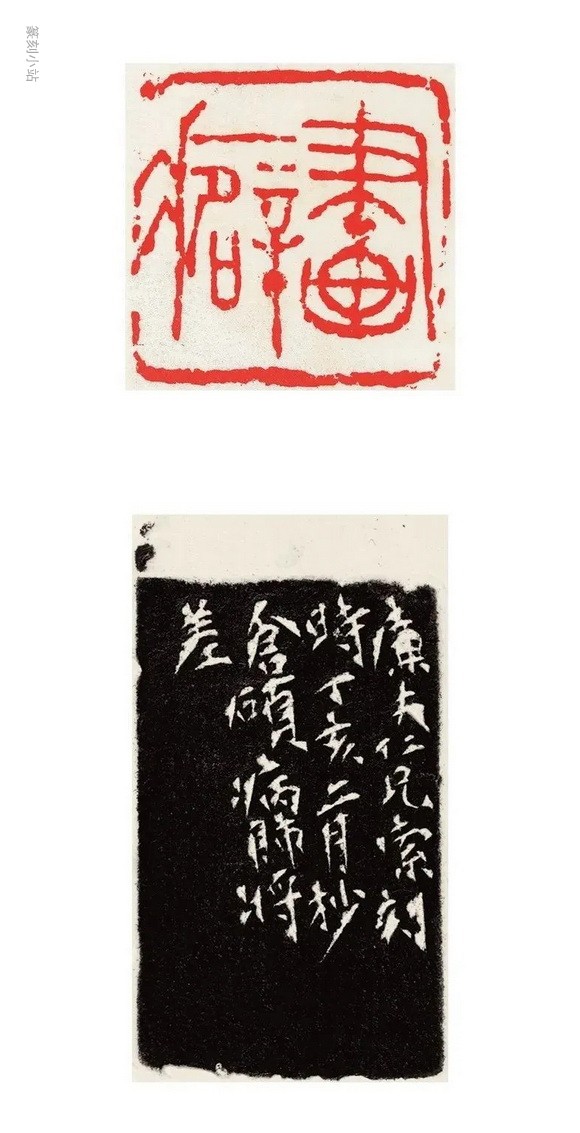 篆刻小站
畫癖
廉夫仁兄索刻
時丁亥二月杪
倉碩病肺將
差